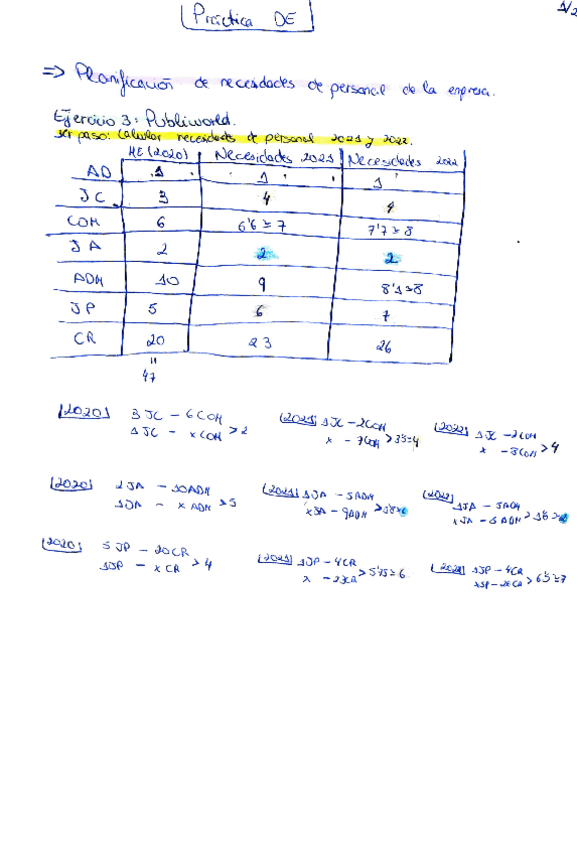 1/2
Práctica DE
=> Planificación de necesidades de personal de la empresa.
Ejercicio 3: Publiworld.
1er paso: Calcular necesidades de personal 2021 y 2022.
ME (2020) Necesidades 2021 Necesidades 2022
AD 1 1 1
JC 3 4 4
COM 6 6'6 ≃ 7 7'7 ≃ 8
JA 2 2 2
ADM 10 9 8'1 ≃ 8
JP 5 6 7
CR 20 23 26
47
2020 3 JC - 6 COM
1 JC - x COM > 2
2021 1 JC - 2 COM
x - 7 COM > 3'5 ≃ 4
2022 1 JC - 2 COM
x - 8 COM > 4
2020 2 JA - 10 ADM
1 JA - x ADM > 5
2021 1 JA - 5 ADM
x JA - 9 ADM > 1'8 ≃ 2
2022 1 JA - 5 ADM
x JA - 8 ADM > 1'6 ≃ 2
2020 5 JP - 20 CR
1 JP - x CR > 4
2021 1 JP - 4 CR
x - 23 CR > 5'75 ≃ 6
2022 1 JP - 4 CR
x JP - 26 CR > 6'5 ≃ 7